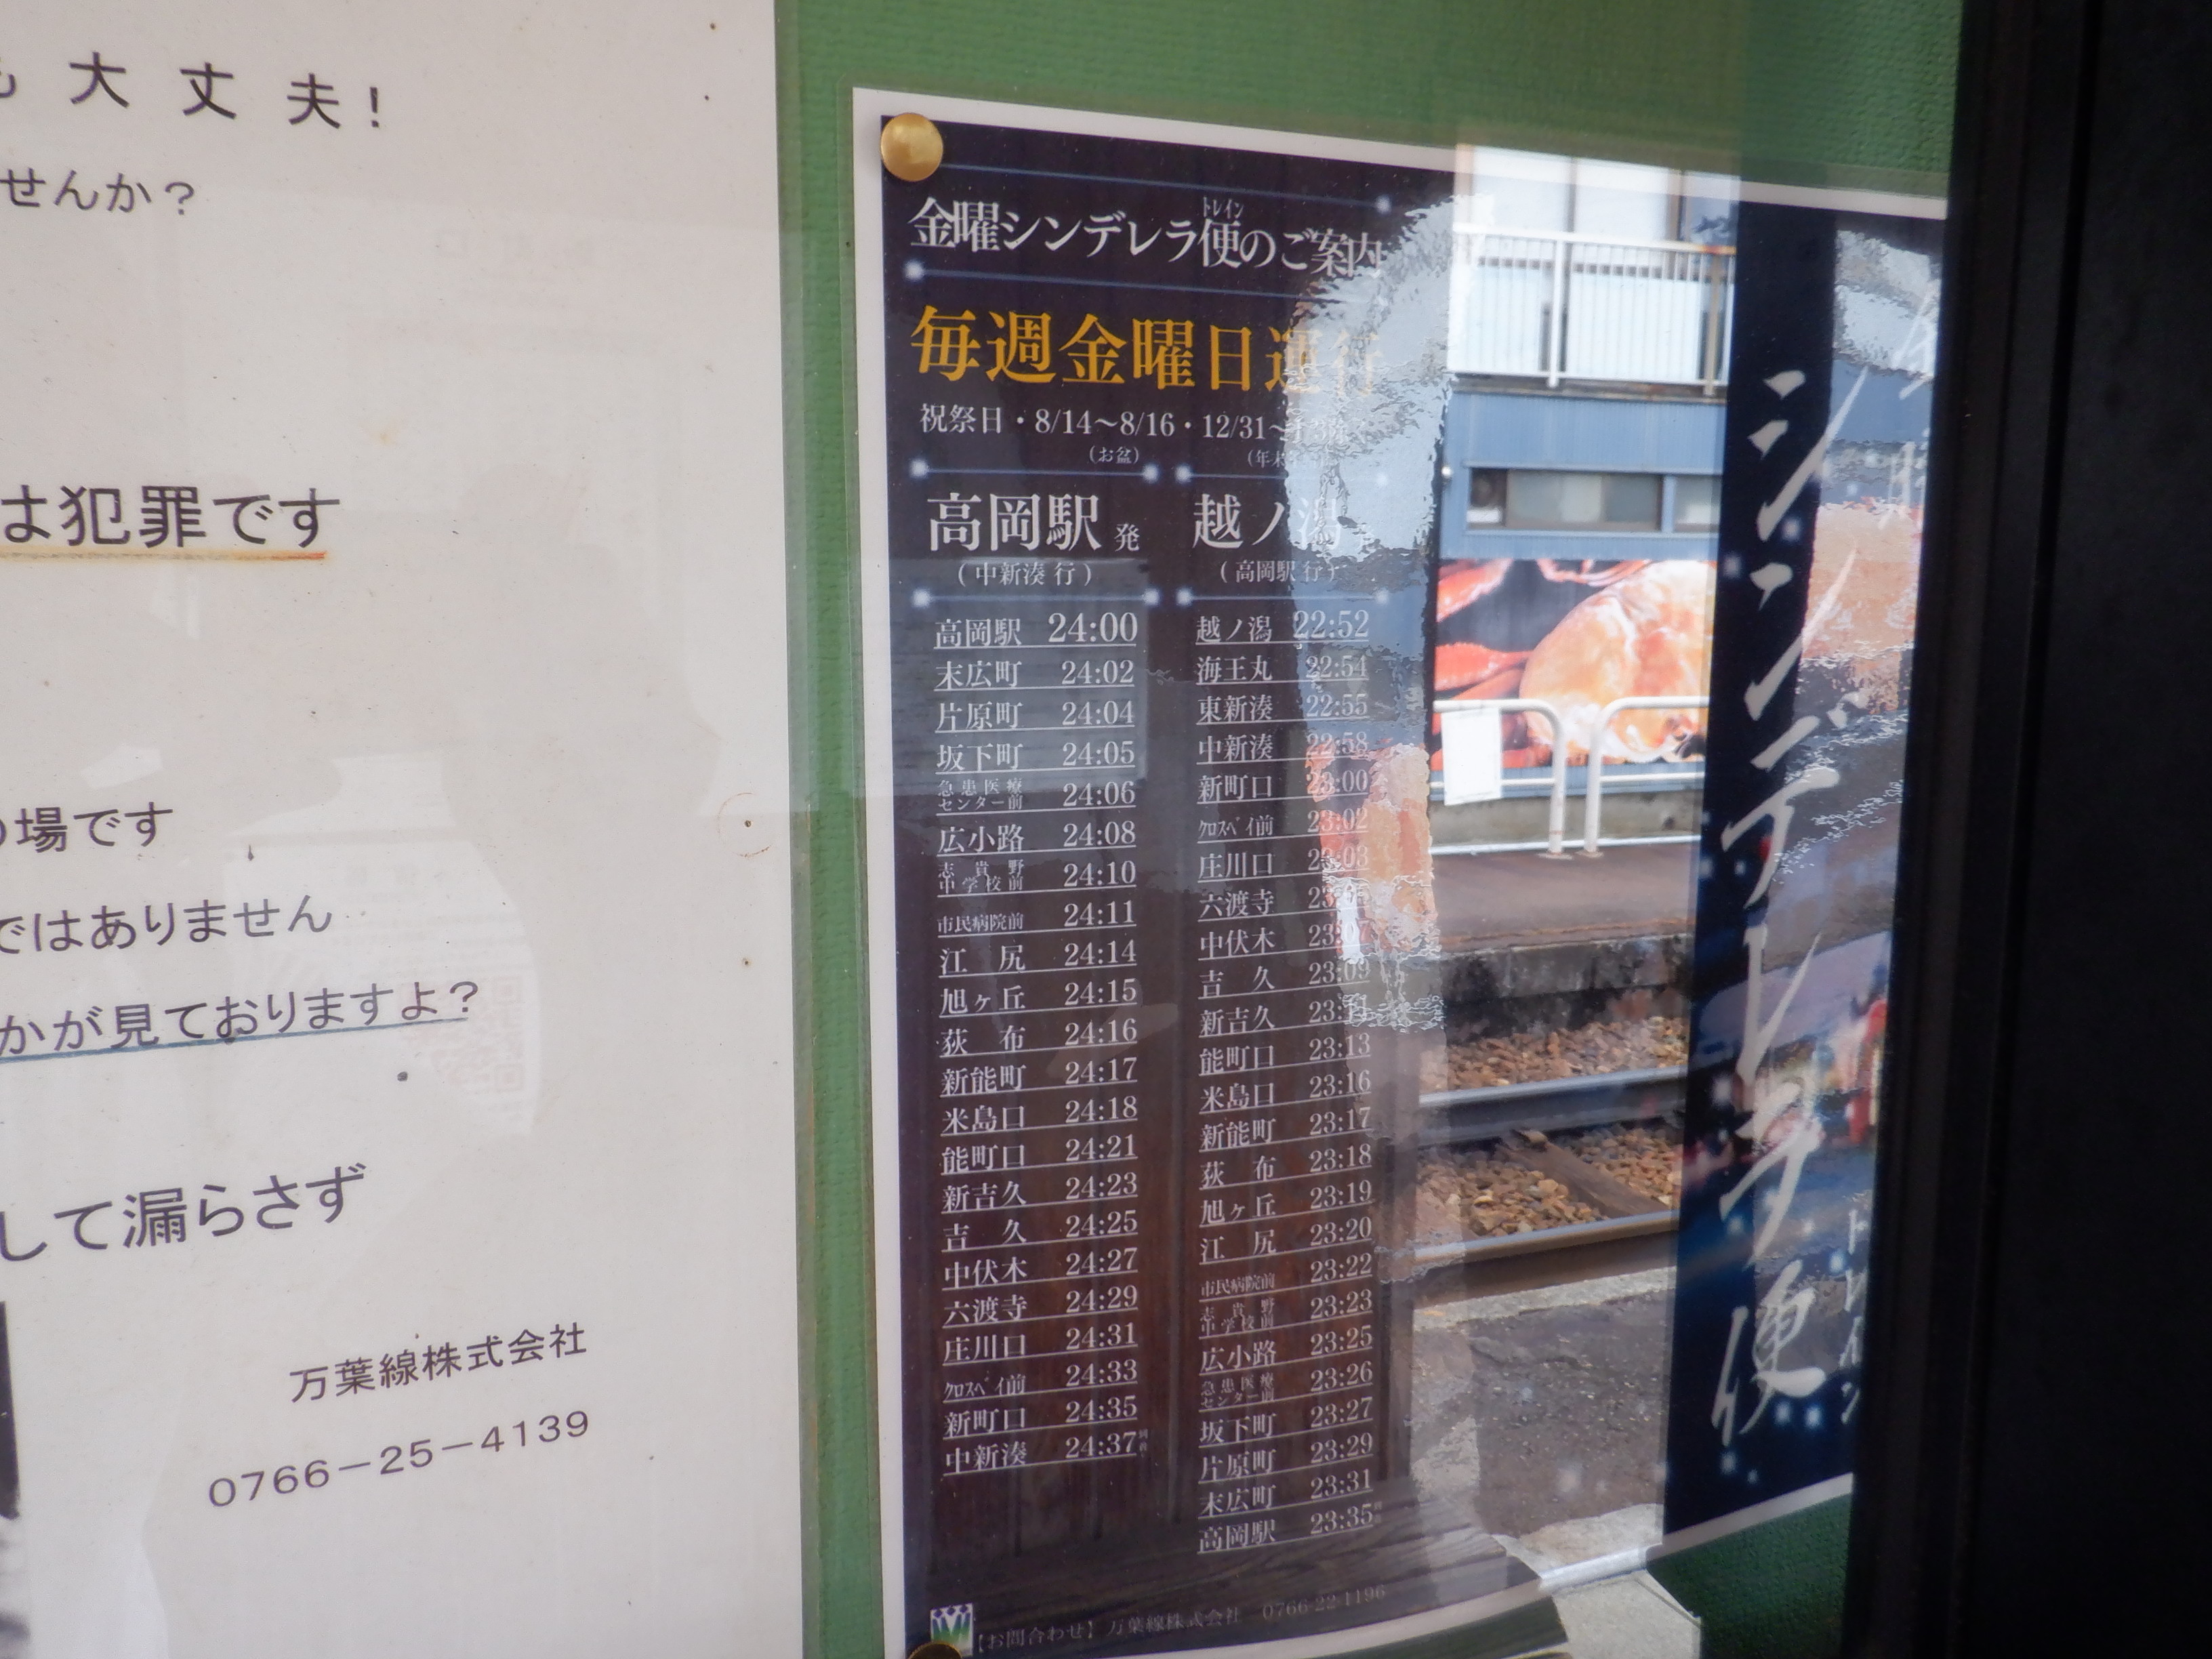 大丈夫!
せんか?
は犯罪です
場です
ではありません
かが見ておりますよ?
して漏らさず
万葉線株式会社
0766-25-4139
トレイン
金曜シンデレラ便のご案内
毎週金曜日運行
祝祭日・8/14～8/16・12/31～
(お盆)
高岡駅 発
(中新湊 行)
高岡駅 24:00
末広町 24:02
片原町 24:04
坂下町 24:05
急患医療センター前 24:06
広小路 24:08
志貴野中学校前 24:10
市民病院前 24:11
江 尻 24:14
旭ヶ丘 24:15
荻 布 24:16
新能町 24:17
米島口 24:18
能町口 24:21
新吉久 24:23
吉 久 24:25
中伏木 24:27
六渡寺 24:29
庄川口 24:31
クロスベイ前 24:33
新町口 24:35
中新湊 24:37
越ノ潟
(高岡駅 行)
越ノ潟 22:52
海王丸 22:54
東新湊 22:55
中新湊 22:58
新町口 23:00
クロスベイ前 23:02
庄川口 23:03
六渡寺
中伏木 23:07
吉 久 23:09
新吉久
能町口 23:13
米島口 23:16
新能町 23:17
荻 布 23:18
旭ヶ丘 23:19
江 尻 23:20
市民病院前 23:22
志貴野中学校前 23:23
広小路 23:25
急患医療センター前 23:26
坂下町 23:27
片原町 23:29
末広町 23:31
高岡駅 23:35
【お問合わせ】万葉線株式会社 0766-22-1196
シンデレラ便